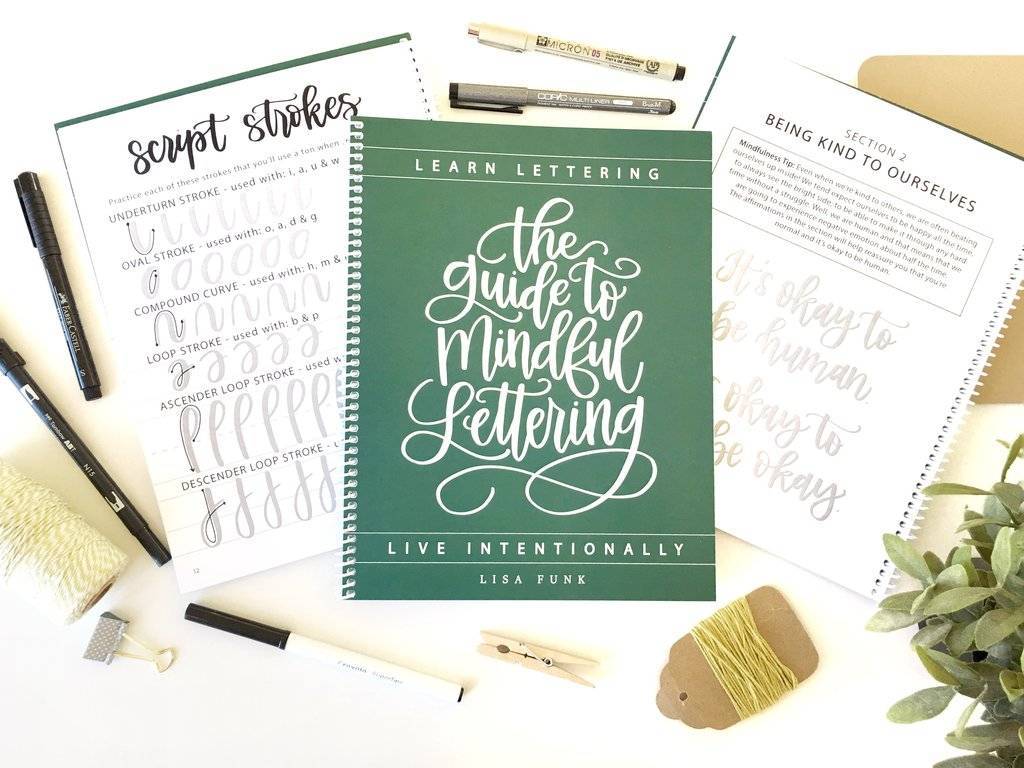 script strokes
Practice each of these strokes that you'll use a ton when
UNDERTURN STROKE - used with: i, a, u & w
OVAL STROKE - used with: o, a, d & g
COMPOUND CURVE - used with: h, m &
LOOP STROKE - used with: b & p
ASCENDER LOOP STROKE - used
DESCENDER LOOP STROKE -
12
MICRON 05
COPIC MULTI LINER
Brush M
LEARN LETTERING
the
guide to
Mindful
Lettering
LIVE INTENTIONALLY
LISA FUNK
SECTION 2
BEING KIND TO OURSELVES
Mindfulness Tip: Even when we're kind to others, we are often beating
ourselves up inside! We tend expect ourselves to be happy all the time,
to always see the bright side, to be able to make it through any hard
time without a struggle. Well, we are human and that means that we
are going to experience negative emotion about half the time.
The affirmations in the section will help reassure you that you're
normal and it's okay to be human.
It's okay to
be human.
okay to
be okay.
FABER-CASTELL
Tombow ABT
N15
Crayola SuperTips